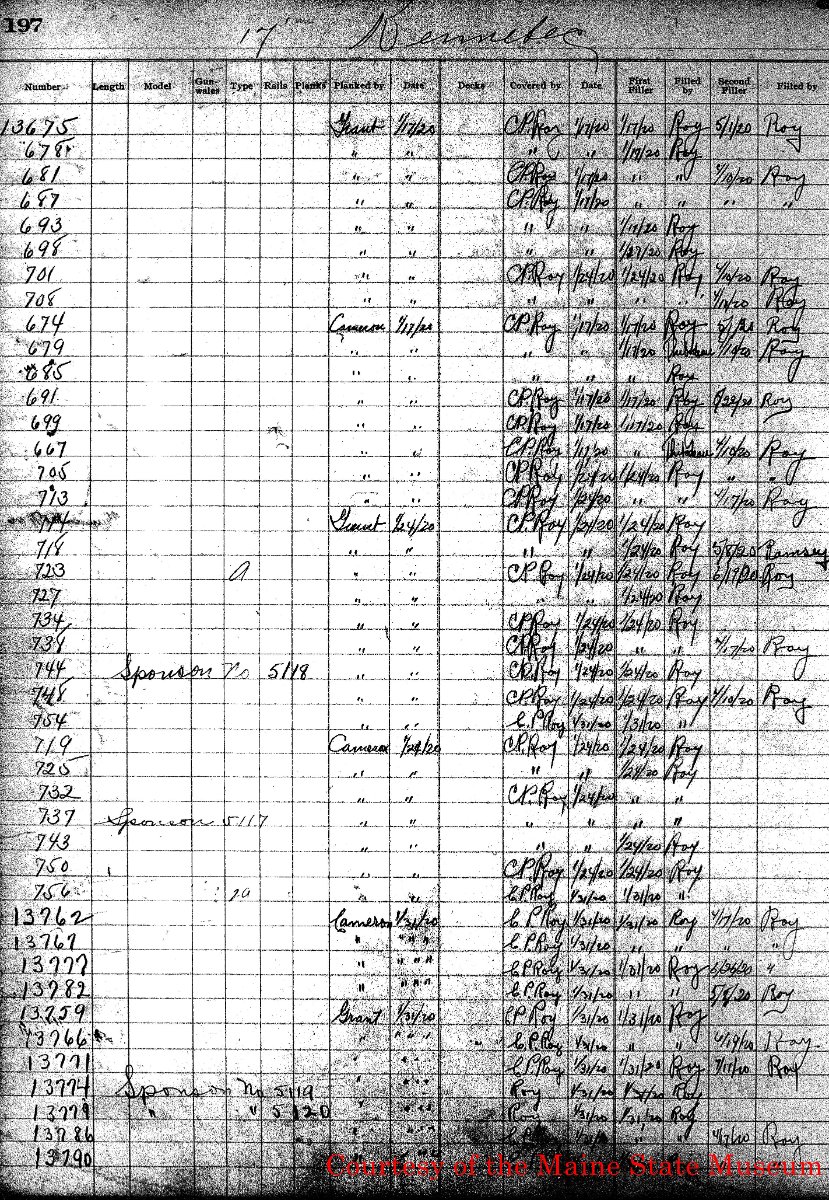 197
17' Kennebec
Number Length Model Gun-wales Type Rails Planks Planked by Date Decks Covered by Date First Filler Filled by Second Filler Filled by
13675 Grant 1/17/20 C.P. Roy 1/17/20 1/17/20 Roy 5/1/20 Roy
678 " " " " 1/17/20 Roy
681 " " C.P. Roy 1/17/20 " " 4/10/20 Roy
687 " " C.P. Roy 1/17/20 " " " "
693 " " " " 1/17/20 Roy
698 " " " " 1/27/20 Roy
701 " " C.P. Roy 1/24/20 1/24/20 Roy 4/10/20 Roy
708 " " " " " " Roy
674 Cameron 1/17/20 C.P. Roy 1/17/20 1/17/20 Roy 5/1/20 Roy
679 " " " " 1/17/20 4/10/20 Roy
685 " " " " " Roy
691 " " C.P. Roy 1/17/20 1/17/20 Roy Roy
699 " " C.P. Roy 1/17/20 1/17/20 Roy
667 " " C.P. Roy 1/17/20 " 4/10/20 Roy
705 " " C.P. Roy 1/24/20 1/24/20 Roy " "
713 " " C.P. Roy 1/24/20 " " 4/17/20 Roy
Grant 1/24/20 C.P. Roy 1/24/20 1/24/20 Roy
718 " " " " 1/24/20 Roy 5/8/20 Ramsey
723 " " C.P. Roy 1/24/20 1/24/20 Roy Roy
727 " " " " 1/24/20 Roy
734 " " C.P. Roy 1/24/20 1/24/20 Roy
738 " " C.P. Roy 1/24/20 " " 4/17/20 Roy
744 Sponson No 5118 " " C.P. Roy 1/24/20 1/24/20 Roy
748 " " C.P. Roy 1/24/20 1/24/20 Roy 4/10/20 Roy
754 " " C.P. Roy 1/31/20 1/31/20 "
719 Cameron 1/24/20 C.P. Roy 1/24/20 1/24/20 Roy
725 " " " " 1/24/20 Roy
732 " " C.P. Roy 1/24/20 " "
737 Sponson 5117 " " " " " "
743 " " " " 1/24/20 Roy
750 " " C.P. Roy 1/24/20 1/24/20 Roy
756 " " C.P. Roy 1/31/20 1/31/20 "
13762 Cameron 1/31/20 C.P. Roy 1/31/20 1/31/20 Roy 4/17/20 Roy
13767 " " " " C.P. Roy 1/31/20 " " " "
13777 " " " " C.P. Roy 1/31/20 1/31/20 Roy "
13782 " " " " C.P. Roy 1/31/20 " " 5/8/20 Roy
13759 Grant 1/31/20 C.P. Roy 1/31/20 1/31/20 Roy
13766 " " " " C.P. Roy 1/31/20 " " 4/19/20 Roy
13771 " " " C.P. Roy 1/31/20 1/31/20 Roy Roy
13774 Sponson No 5119 " " " Roy 1/31/20 1/31/20 Roy
13779 " " 5120 " " " 1/31/20 1/31/20 Roy
13786 " " " " " 4/17/20 Roy
13790 "
Courtesy of the Maine State Museum